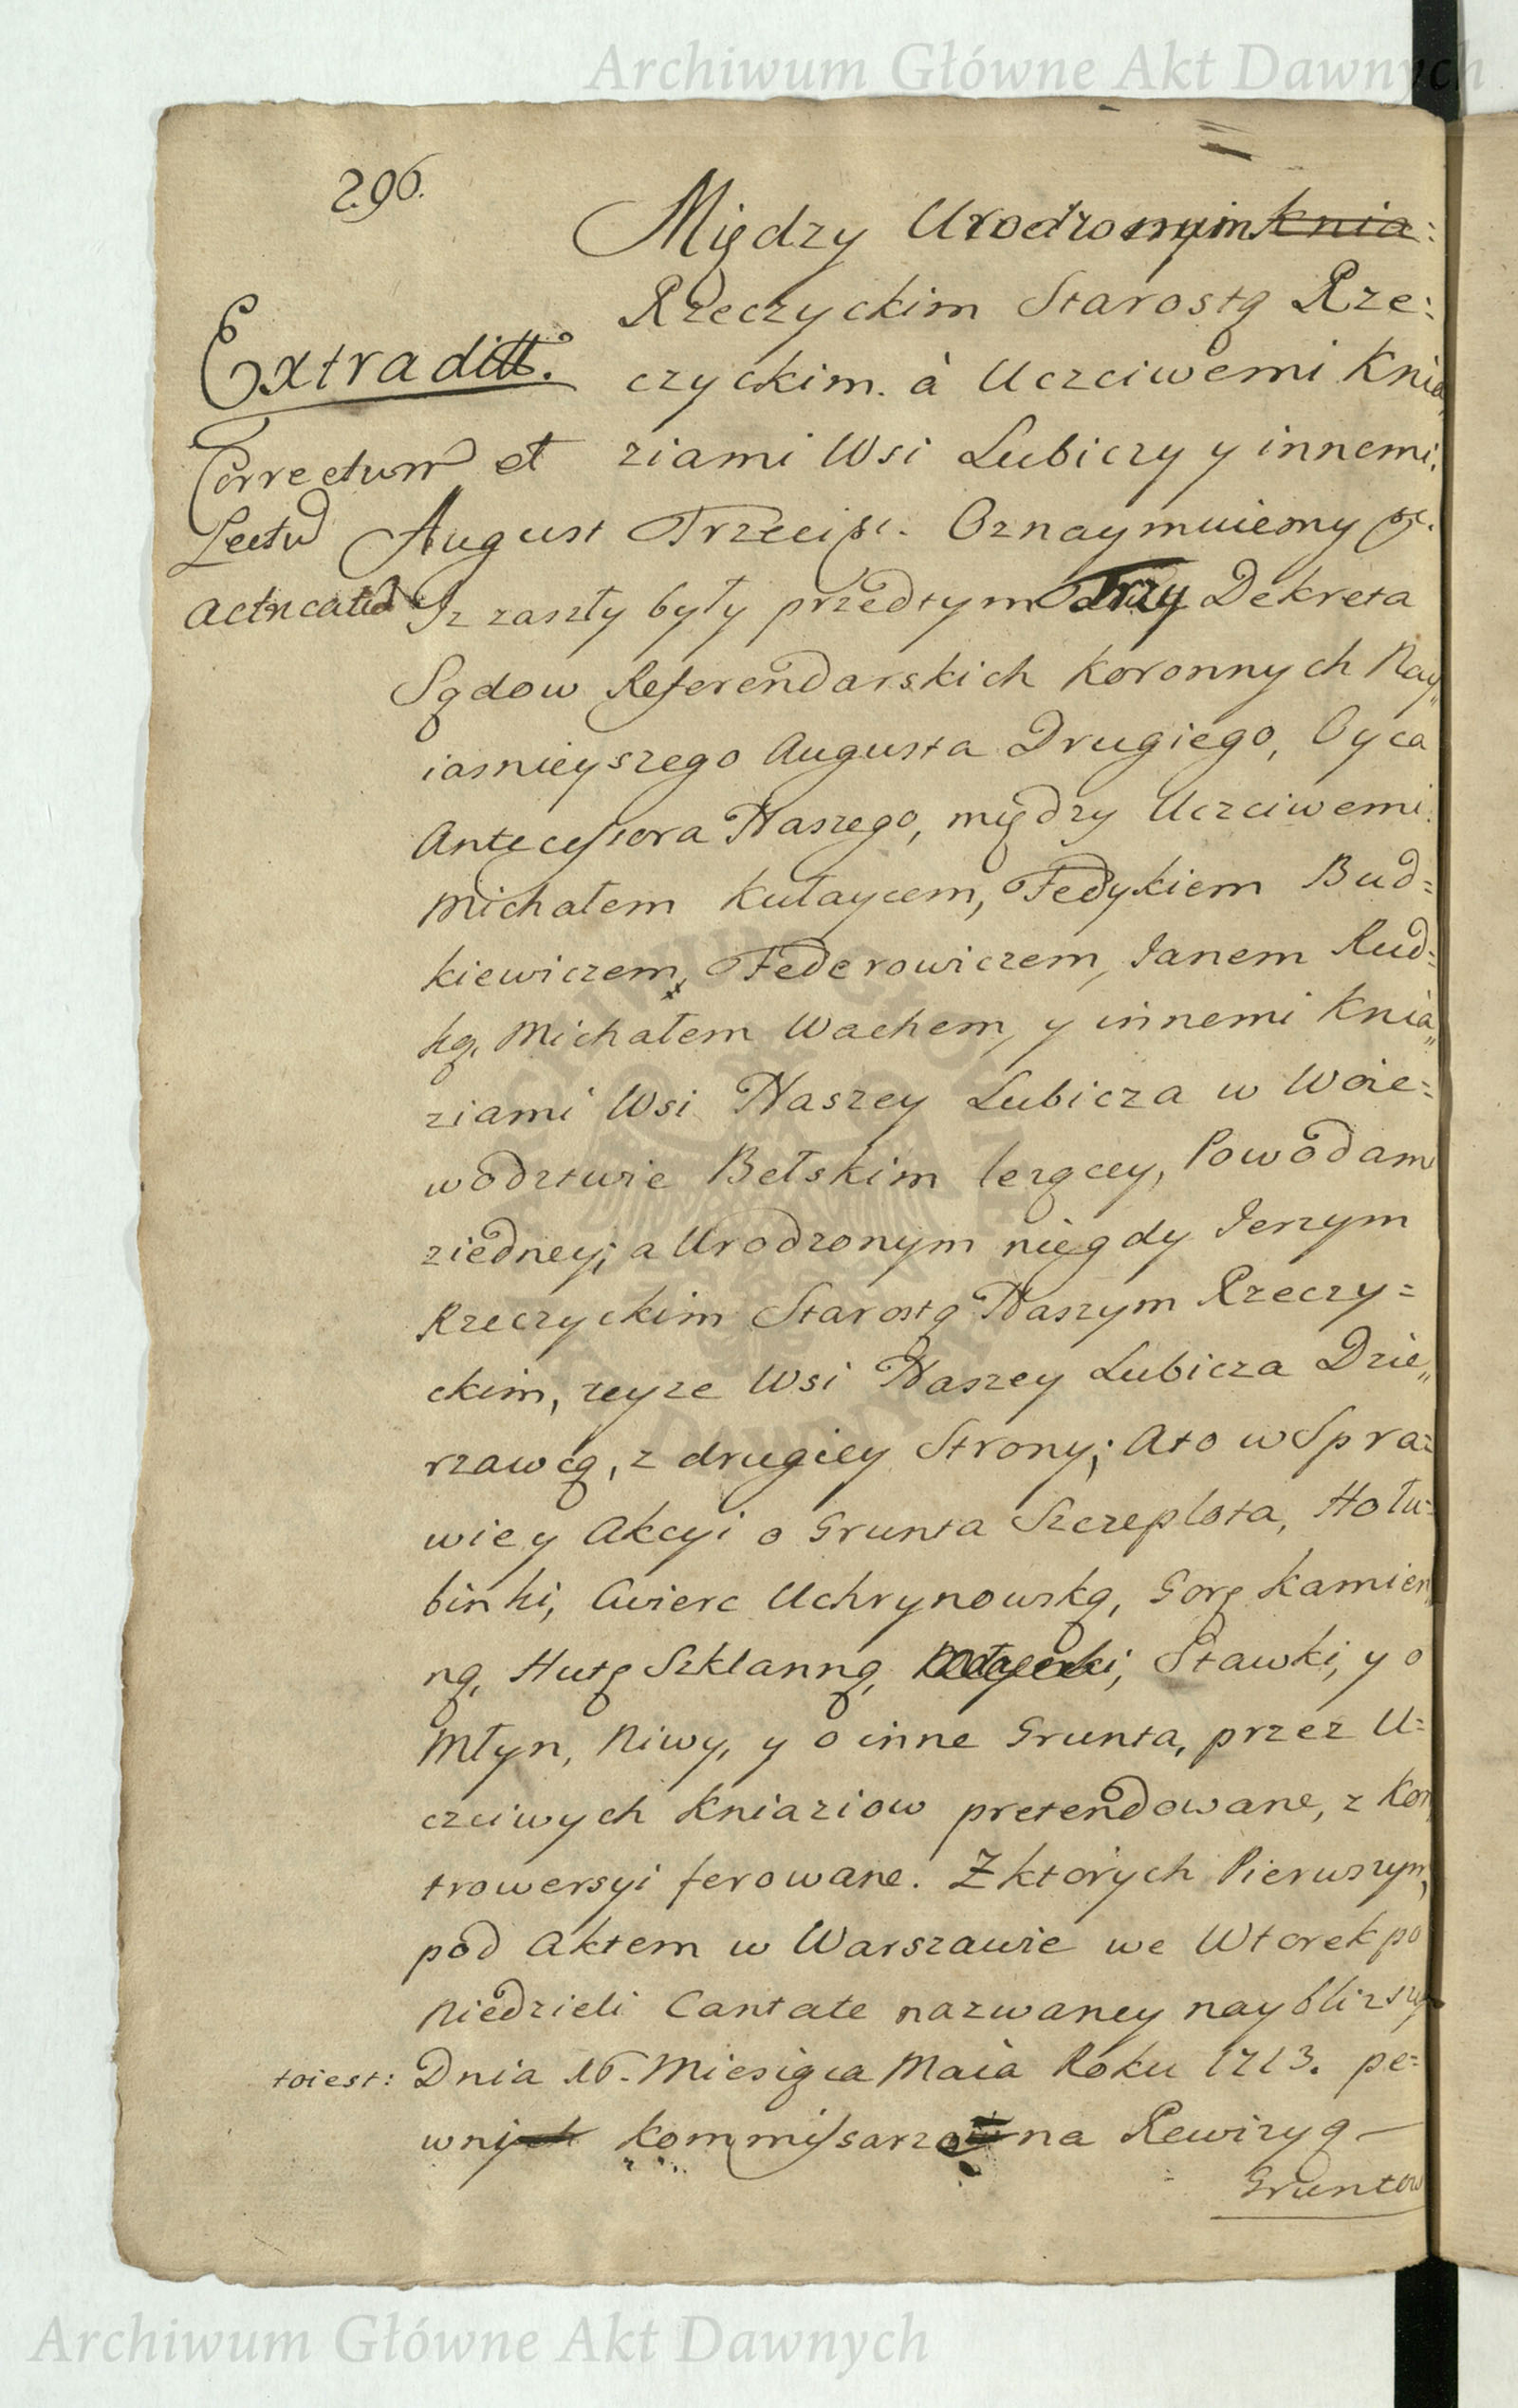 Archiwum Główne Akt Dawnych
296.
Między Urodzonym Knia:
Rzeczyckim Starostą Rze:
Extradit.
czyckim. à Uczciwemi Knia„
Correctum et
ziami Wsi Lubiczy y innemi.
Lectum
August Trzeci pc. Oznaymuiemy pc.
Acticatum
Iż zaszły były przedtym Trzy Dekreta
Sądow Referendarskich Koronnych Nay„
iasnieyszego Augusta Drugiego, Oyca
Antecessora Naszego, między Uczciwemi
Michałem Kułaycem, Fedykiem Bud=
kiewiczem, Federowiczem, Janem Rud=
ką, Michałem Wachem, y innemi Knia„
ziami Wsi Naszey Lubicza w Woie=
wodztwie Bełskim lezącey, Powodam
ziedney; a Urodzonym niegdy Jerzym
Rzeczyckim Starostą Naszym Rzeczy=
ckim, teyze Wsi Naszey Lubicza Dzie„
rzawcą, z drugiey Strony; Ato w Spra=
wie y Akcyi o Grunta Szczeplota, Hołu=
binki, Cwierc Uchrynowską, Gorę Kamien„
ną, Hutę Szklanną, Stawki, y o
Młyn, Niwy, y o inne Grunta, przez U=
czciwych Kniaziow pretendowane, z Kon„
trowersyi ferowane. Z ktorych Pierwszym,
pod Aktem w Warszawie we Wtorek po
Niedzieli Cantate nazwaney nayblizszy
toiest: Dnia 16. Miesiąca Maia Roku 1713. pe=
wnych Kommissarzow na Rewizyą
Gruntow
Archiwum Główne Akt Dawnych